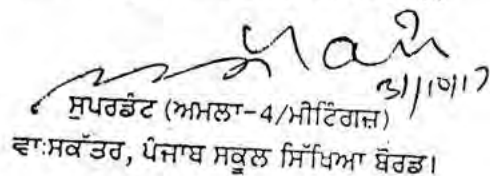 31/10/17
ਸੁਪਰਡੰਟ (ਅਮਲਾ-4/ਮੀਟਿੰਗਜ਼)
ਵਾ:ਸਕੱਤਰ, ਪੰਜਾਬ ਸਕੂਲ ਸਿੱਖਿਆ ਬੋਰਡ।